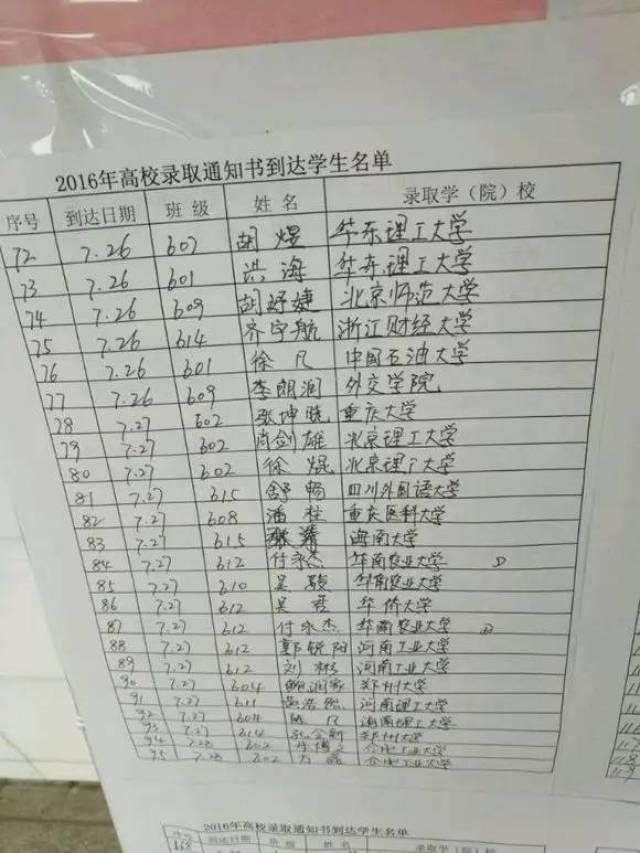 2016年高校录取通知书到达学生名单
序号 到达日期 班 级 姓 名 录取学（院）校
72 7.26 607 胡 煜 华东理工大学
73 7.26 601 洪 海 华东理工大学
74 7.26 609 胡妤婕 北京师范大学
75 7.26 614 齐宇航 浙江财经大学
76 7.26 601 徐 凡 中国石油大学
77 7.26 609 李朗润 外交学院
78 7.27 602 张坤晓 重庆大学
79 7.27 602 肖剑雄 北京理工大学
80 7.27 602 徐 焜 北京理工大学
81 7.27 615 舒 畅 四川外国语大学
82 7.27 608 潘 柱 重庆医科大学
83 7.27 615 海南大学
84 7.27 612 付永杰 华南农业大学
85 7.27 610 吴 骏 华南农业大学
86 7.27 612 吴 君 华侨大学
87 7.27 612 付永杰 华南农业大学
88 7.27 612 郭锐阳 河南工业大学
89 7.27 612 刘 彬 河南工业大学
90 7.27 604 郑州大学
91 7.27 611 河南理工大学
92 7.27 604 理工大学
93 7.27 614 郑州大学
94 7.28 602 合肥工业大学
95 7.28 602 方 合肥工业大学
2016年高校录取通知书到达学生名单
序号 到达日期 班 级 姓 名 录取学（院）校